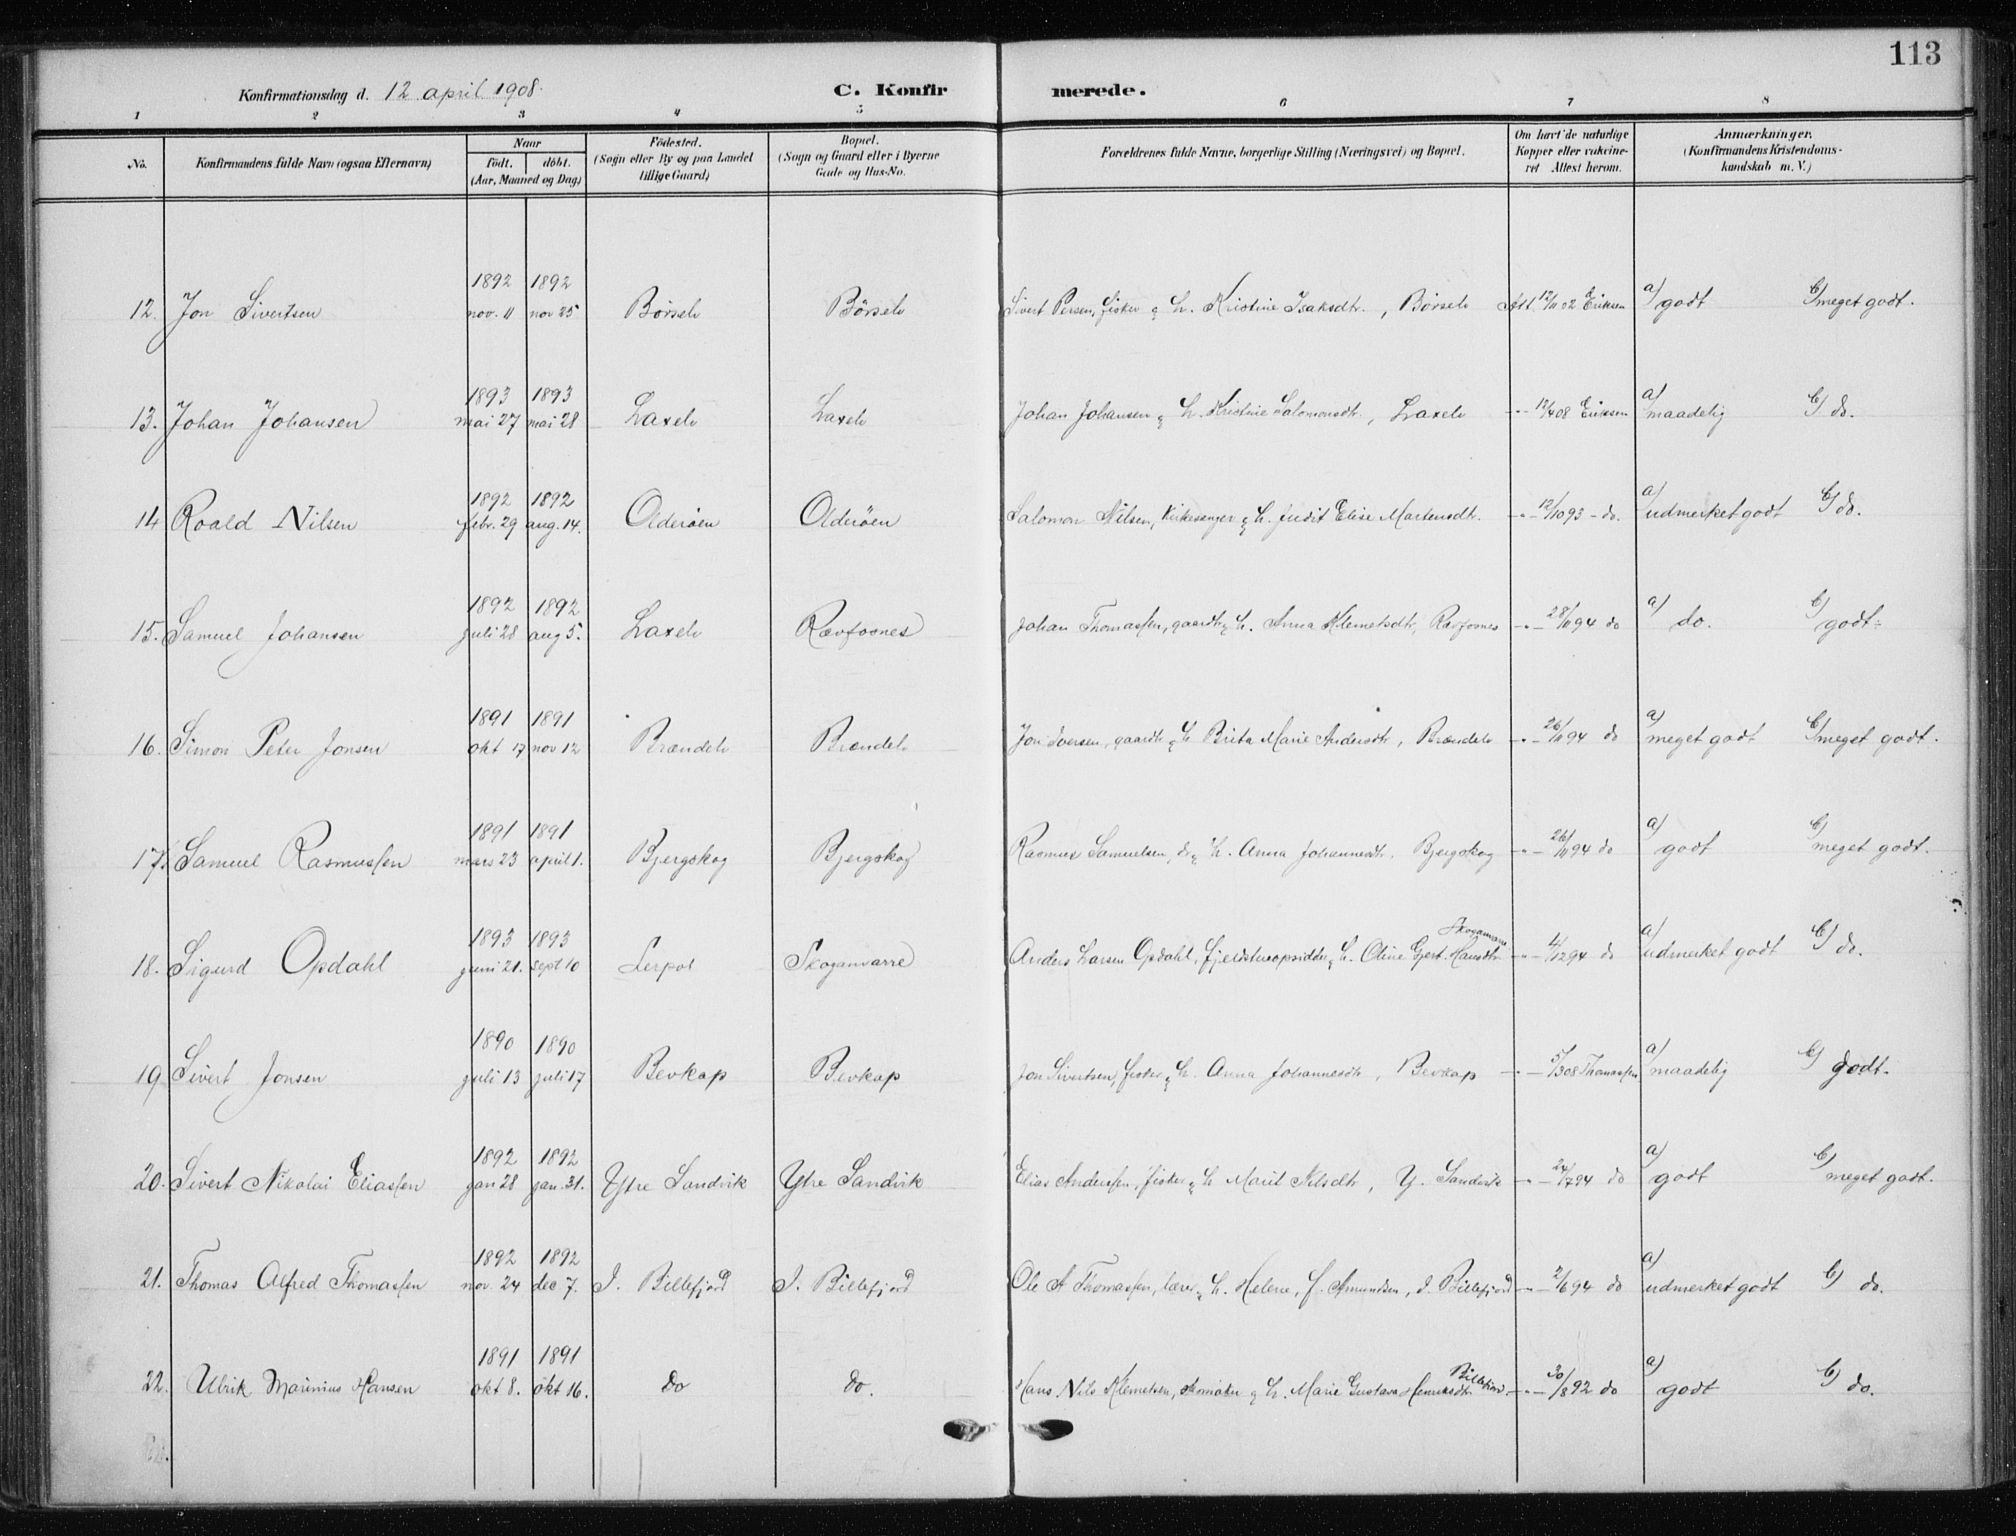 113
Konfirmationsdag d. 12 april 1908. C. Konfirmerede.
1 2 3 4 5 6 7 8
No. Konfirmandens fulde Navn (ogsaa Efternavn) Naar født. døbt. (Aar, Maaned og Dag) Fødested. (Sogn eller By og paa Landet tillige Gaard) Bopæl. (Sogn og Gaard eller i Byerne Gade og Hus-No. Forældrenes fulde Navne, borgerlige Stilling (Næringsvei) og Bopæl. Om havt de naturlige Kopper eller vakcineret Attest herom. Anmærkninger. (Konfirmandens Kristendomskundskab m. V.)
1892 1892
12. Jon Sivertsen nov. 11 nov 25 Børselv Børselv Sivert Persen, fisker & h. Kristine Isaksdtr. , Børselv Att 12/11 02 Eriksen a) godt b) meget godt.
1893 1893
13. Johan Johansen mai 27 mai 28 Laxelv Laxelv Johan Johansen & h. Kristine Salomonsdtr. , Laxelv -"- 12/4 08 Eriksen a) maadelig b) do.
1892 1892
14 Roald Nilsen febr. 29 aug. 14. Olderøen Olderøen Salomon Nilsen, Kirkesanger & h. Judit Elise Martensdtr. -"- 12/10 93 - do. a) udmerket godt b) do.
1892 1892
15. Samuel Johansen juli 28 aug 5. Laxelv Rævfosnes Johan Thomassen, gaardbr & h. Anna Klemetsdtr, Rævfosnes -"- 28/11 94 do a) do. b) godt.
1891 1891
16. Simon Peter Jonsen okt 17 nov 12 Brændelv Brændelv Jon Iversen, gaardbr & h Brita Marie Andersdtr, Brændelv -"- 26/11 94 do a) meget godt b) meget godt.
1891 1891
17. Samuel Rasmussen mars 23 april 1. Bjergskog Bjergskog Rasmus Samuelsen, do & h. Anna Johannesdtr, Bjergskog -"- 26/11 94 do a) godt b) meget godt.
1893 1893 Skoganvarre
18. Sigurd Opdahl juni 21. sept 10 Lerpol Skoganvarre Anders Larsen Opdahl, fjeldstueopsidder & h. Oline Gjert. Hansdtr -"- 4/12 94 do a) udmerket godt b) do.
1890 1890
19 Sivert Jonsen juli 13 juli 17 Bevkap Bevkap Jon Sivertsen, fisker & h. Anna Johannesdtr, Bevkap -"- 5/3 08 Thomassen a) maadelig b) godt.
1892 1892
20. Sivert Nikolai Eliassen jan 28 jan. 31. Ytre Sandvik Ytre Sandvik Elias Anderssen, fisker & h Marit Nilsdtr, Y. Sandvik -"- 24/7 94 do a) godt b) meget godt.
1892 1892
21. Thomas Alfred Thomassen nov. 24 dec 7. I. Billefjord I. Billefjord Ole A Thomassen, lærer & h. Helene, f. Amundsen, I. Billefjord -"- 2/6 94 do a) udmerket godt b) do.
1891 1891 Billefjord
22. Ulrik Marinius Hansen okt 8. okt 16. do do. Hans Nils Klemetsen, skomaker & h. Marie Gustava Henriksdtr -"- 30/8 92 do a) godt b) do.